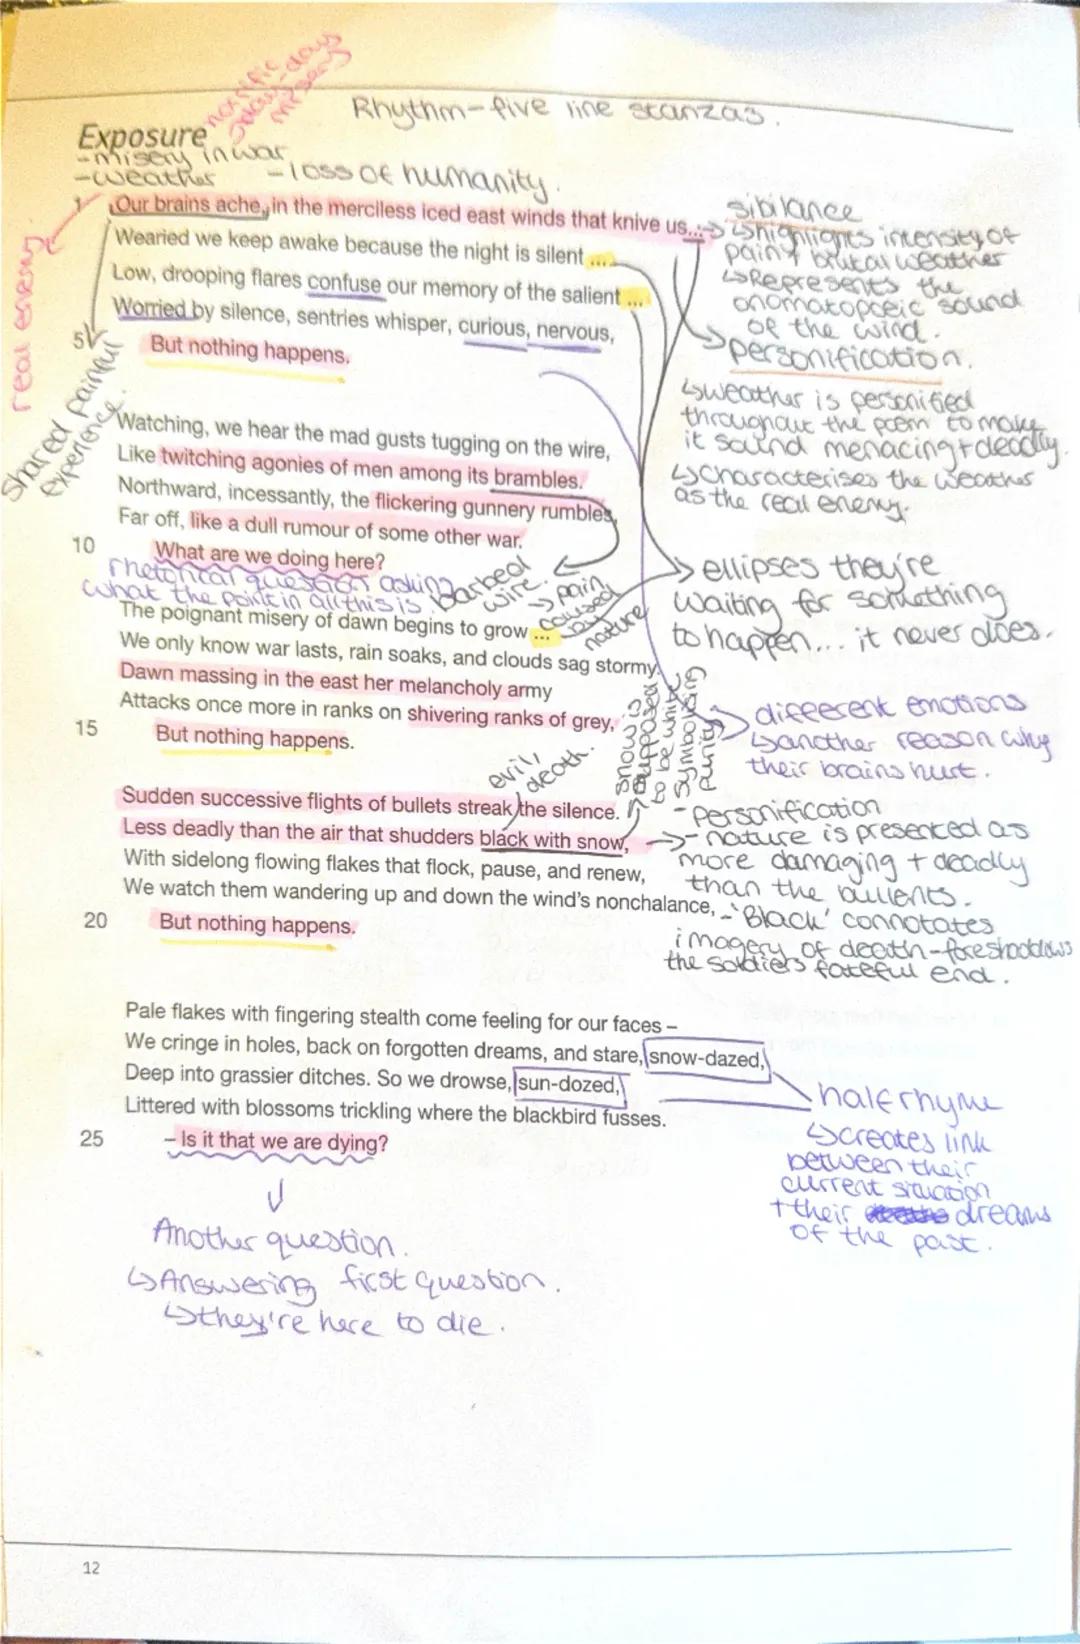 horrific
day-days
misery
Rhythm-five line stanzas.
Exposure
-misery in war
-weather
-loss of humanity.
1
Our brains ache, in the merciless iced east winds that knive us...
Wearied we keep awake because the night is silent ...
Low, drooping flares confuse our memory of the salient ...
Worried by silence, sentries whisper, curious, nervous,
5
But nothing happens.
real enemy
shared painful
experience.
sibilance
↳highlights intensity of
pain + brutal weather
↳Represents the
onomatopoeic sound
of the wind.
personification.
↳weather is personified
throughout the poem to make
it sound menacing+deadly.
↳characterises the weather
as the real enemy.
Watching, we hear the mad gusts tugging on the wire,
Like twitching agonies of men among its brambles.
Northward, incessantly, the flickering gunnery rumbles,
Far off, like a dull rumour of some other war.
10
What are we doing here?
rhetorical question asking
what the point in all this is.
Barbed
wire.
→pain
caused
by
nature
ellipses they're
waiting for something
to happen... it never does.
The poignant misery of dawn begins to grow ...
We only know war lasts, rain soaks, and clouds sag stormy.
Dawn massing in the east her melancholy army
Attacks once more in ranks on shivering ranks of grey,
15
But nothing happens.
different emotions
↳another reason why
their brains hurt.
evil,
death.
snow is
supposed
to be white
symbolising
purity
Sudden successive flights of bullets streak the silence.
Less deadly than the air that shudders black with snow,
With sidelong flowing flakes that flock, pause, and renew,
We watch them wandering up and down the wind's nonchalance,
20
But nothing happens.
-personification
- nature is presented as
more damaging + deadly
than the bullents.
-'Black' connotates
imagery of death-foreshaddows
the soldiers fateful end.
Pale flakes with fingering stealth come feeling for our faces –
We cringe in holes, back on forgotten dreams, and stare, snow-dazed,
Deep into grassier ditches. So we drowse, sun-dozed,
Littered with blossoms trickling where the blackbird fusses.
25
– Is it that we are dying?
half rhyme
↳creates link
between their
current situation
+ their dreams
of the past.
Another question.
↳Answering first question.
↳they're here to die.
12